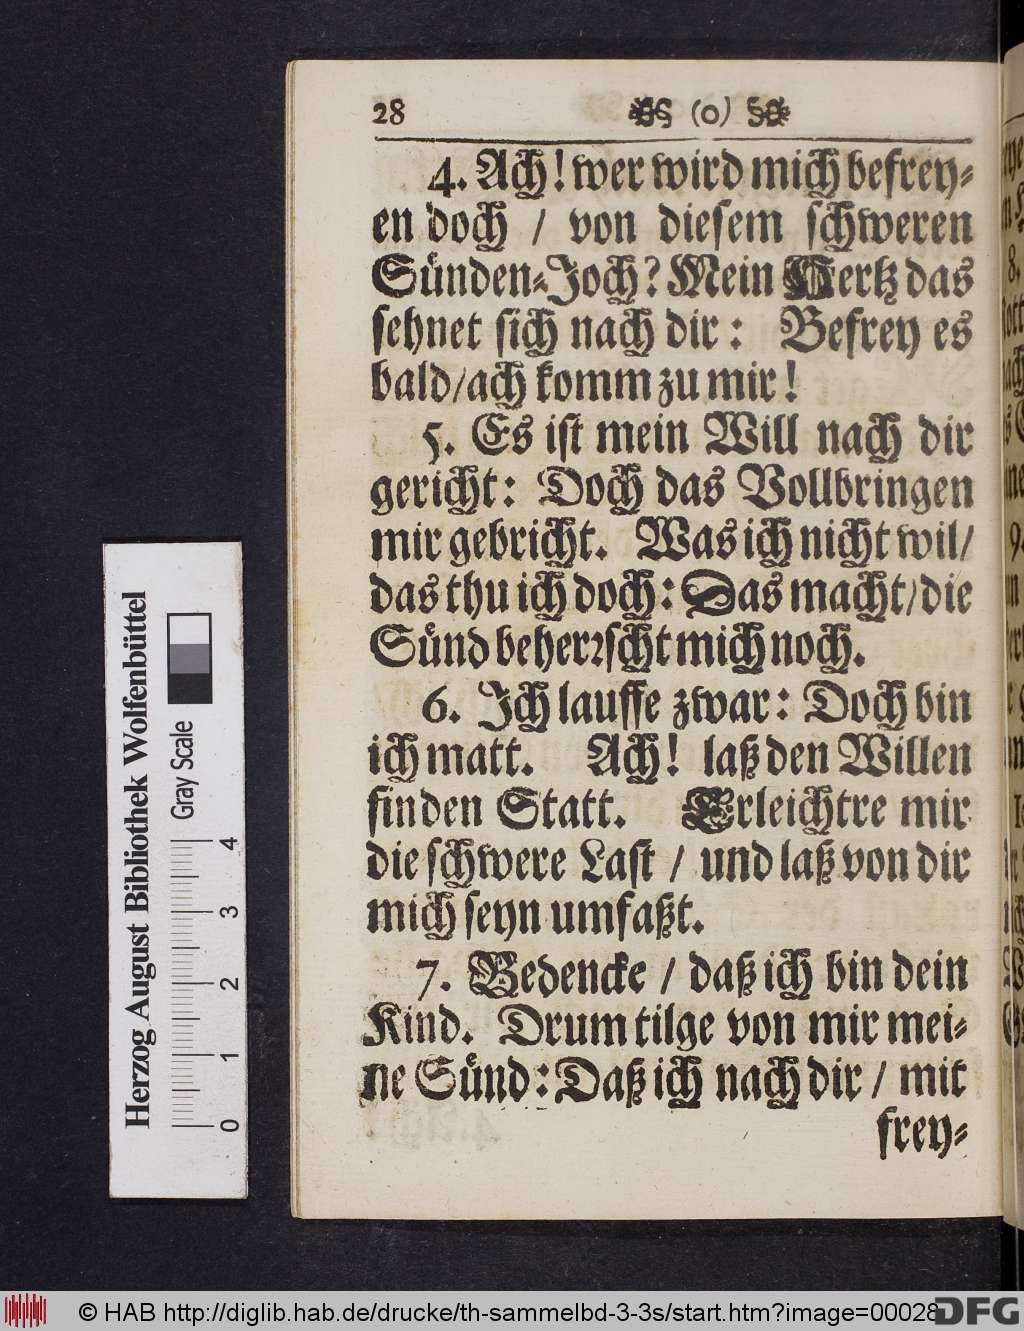 28 (o)
4. Ach! wer wird mich befrey-
en doch / von diesem schweren
Sünden-Joch? Mein Hertz das
sehnet sich nach dir: Befrey es
bald/ach komm zu mir!
5. Es ist mein Will nach dir
gericht: Doch das Vollbringen
mir gebricht. Was ich nicht wil/
das thu ich doch: Das macht/die
Sünd beherrscht mich noch.
6. Ich lauffe zwar: Doch bin
ich matt. Ach! laß den Willen
finden Statt. Erleichtre mir
die schwere Last / und laß von dir
mich seyn umfaßt.
7. Bedencke / daß ich bin dein
Kind. Drum tilge von mir mei-
ne Sünd: Daß ich nach dir / mit
frey-
Herzog August Bibliothek Wolfenbüttel
Gray Scale
0 1 2 3 4
© HAB http://diglib.hab.de/drucke/th-sammelbd-3-3s/start.htm?image=00028
DFG